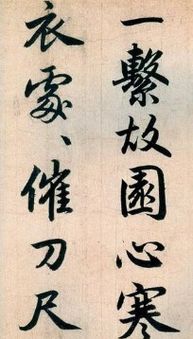 一繫故園心寒
衣處〻催刀尺